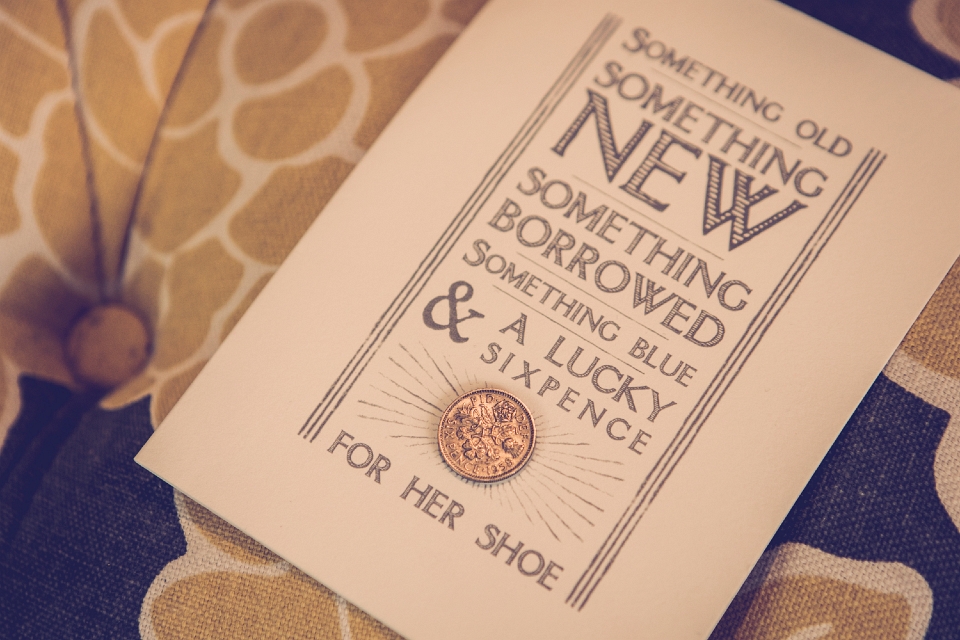 SOMETHING OLD
SOMETHING
NEW
SOMETHING
BORROWED
SOMETHING BLUE
& A LUCKY
SIXPENCE
FOR HER SHOE